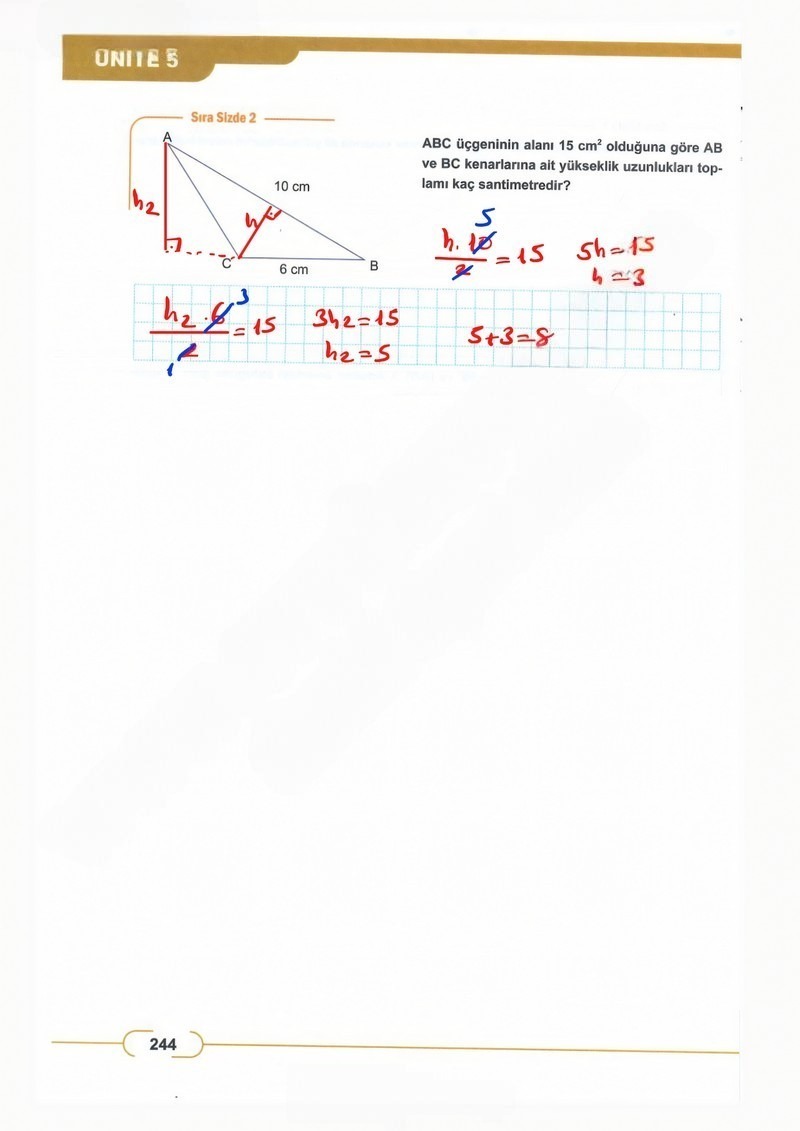 ÜNİTE 5
Sıra Sizde 2
A
10 cm
h2
h
C
6 cm
B
ABC üçgeninin alanı 15 cm² olduğuna göre AB
ve BC kenarlarına ait yükseklik uzunlukları top-
lamı kaç santimetredir?
5
h. 10
2
= 15
5h=15
h=3
h2 . 6
3
2
1
= 15
3h2=15
h2=5
5+3=8
244